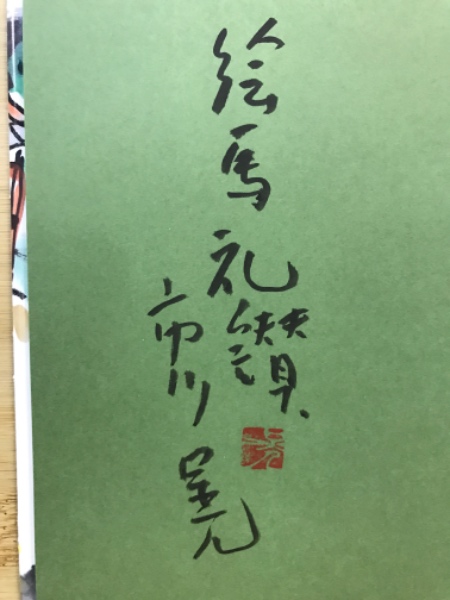 絵馬礼讃
市川晃